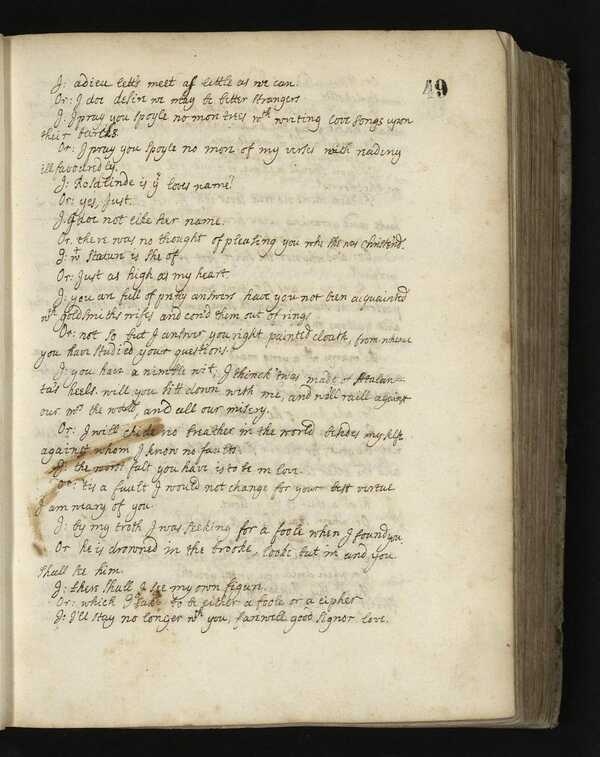 49
J: adieu lett's meet as little as we can.
Or: I doe desire we may be better strangers
J: I pray you spoyle no more trees wth writing love songs upon
their barkes
Or: I pray you spoyle no more of my verses with reading
ill favouredly.
J: Rosalinde is yr loves name?
Or: yes, just.
J: I doe not like her name.
Or. there was no thought of pleasing you when she was christend.
J: wt stature is she of.
Or: Just as high as my heart.
J: you are full of prety answers have you not been acquainted
wth goldsmiths wifes and con'd them out of rings
Or: not so but I answer you right painted cloath, from whence
you have studied your questions.
J: you have a nimble wit, I thinck 'twas made of Atalan=
ta's heels. will you sitt down with me, and wee'll raill against
our mrs the world, and all our misery.
Or: I will chide no breather in the world besides my self
against whom I know no faults.
J: the worst falt you have is to be in love.
Or: tis a fault I would not change for your best virtue
I am weary of you.
J: by my troth I was seeking for a foole when I found you
Or he is drowned in the brooke, looke but in and you
shall see him.
J: there shall I see my own figure.
Or: which I take to be either a foole or a cipher
J: I'll stay no longer wth you, farewell good signor love.